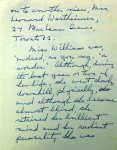 on to another niece, Mrs.
Leonard Wertheimer,
27 McMaster Avenue,
Toronto.
Miss William was
indeed, as you say, "a
wonder". Although, during
the last year or two of
her life, she went slowly
downhill, physically, she
and although she became
almost blind she
retained her brilliant
mind and her radiant
personality. She was